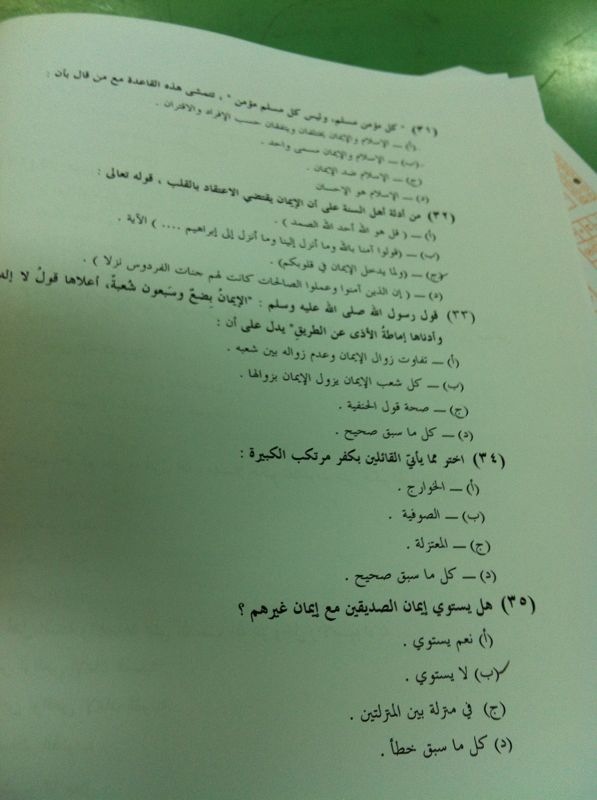 (٣١) " كل مؤمن مسلم، وليس كل مسلم مؤمن " ، تتمشى هذه القاعدة مع من قال بأن :
(أ) ــ الإسلام والإيمان يختلفان ويتفقان حسب الإفراد والاقتران .
(ب) ــ الإسلام والإيمان مسمى واحد .
(ج) ــ الإسلام ضد الإيمان .
(د) ــ الإسلام هو الإحسان
(٣٢) من أدلة أهل السنة على أن الإيمان يقتضي الاعتقاد بالقلب ، قوله تعالى :
(أ) ــ ( قل هو الله أحد الله الصمد ) .
(ب) ــ (قولوا آمنا بالله وما أنزل إلينا وما أنزل إلى إبراهيم .... ) الآية .
(ج) ــ (ولما يدخل الإيمان في قلوبكم) .
(د) ــ ( إن الذين آمنوا وعملوا الصالحات كانت لهم جنات الفردوس نزلا ) .
(٣٣) قول رسول الله صلى الله عليه وسلم : "الإيمانُ بِضعٌ وسَبعون شُعبةً، أعلاها قولُ لا إله
وأدناها إماطةُ الأذى عن الطريقِ" يدل على أن :
(أ) ــ تفاوت زوال الإيمان وعدم زواله بين شعبه .
(ب) ــ كل شعب الإيمان يزول الإيمان بزوالها .
(ج) ــ صحة قول الحنفية .
(د) ــ كل ما سبق صحيح .
(٣٤) اختر مما يأتي القائلين بكفر مرتكب الكبيرة :
(أ) ــ الخوارج .
(ب) ــ الصوفية .
(ج) ــ المعتزلة .
(د) ــ كل ما سبق صحيح .
(٣٥) هل يستوي إيمان الصديقين مع إيمان غيرهم ؟
(أ) نعم يستوي .
(ب) لا يستوي .
(ج) في منزلة بين المنزلتين .
(د) كل ما سبق خطأ .